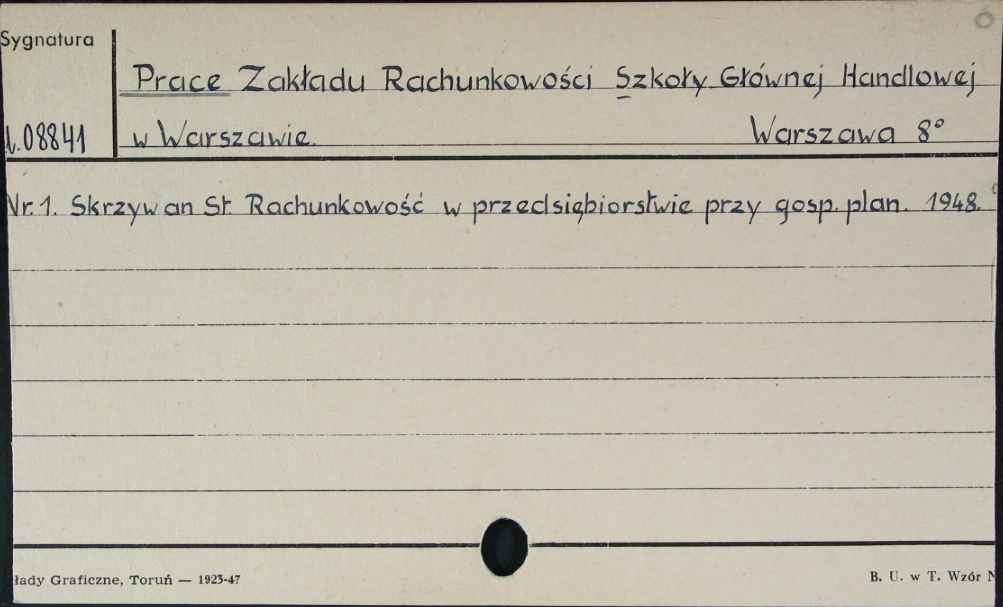 Sygnatura
Prace Zakładu Rachunkowości Szkoły Głównej Handlowej
08841 w Warszawie. Warszawa 8°
Nr. 1. Skrzywan St. Rachunkowość w przedsiębiorstwie przy gosp. plan. 1948.
łady Graficzne, Toruń — 1923-47
B. U. w T. Wzór N